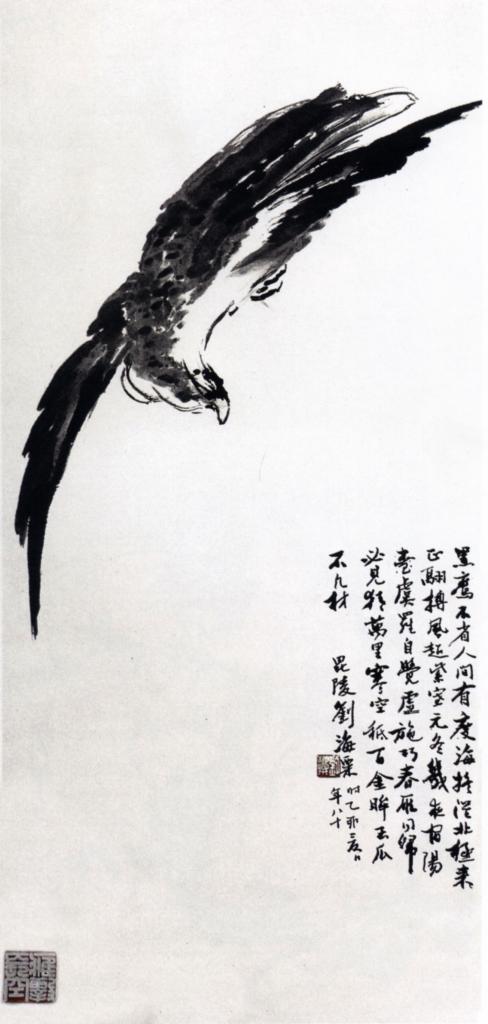 黑鷹不省人间有度海疑從北極来
正翮搏風超紫塞元冬幾夜宿陽
臺虞羅自覺虛施巧春雁同歸
必見猜萬里寒空秪一日金眸玉爪
不凡材
毘陵劉海粟時乙卯
年八十
鷹擊長空